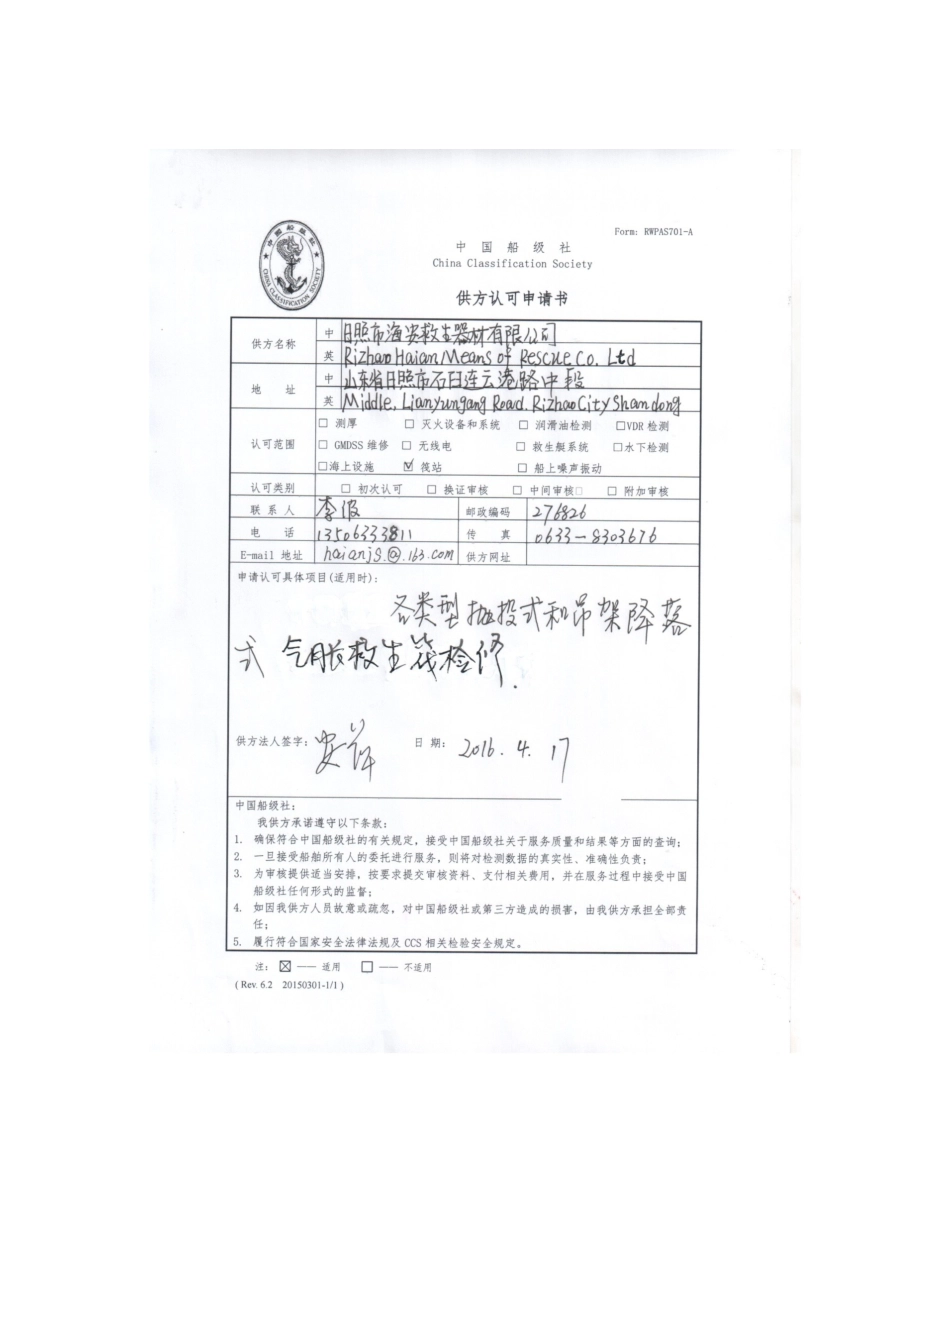 Form: RWPAS701-A
中国船级社
CHINA CLASSIFICATION SOCIETY
中 国 船 级 社
China Classification Society
供方认可申请书
供方名称 中 日照市海安救生器材有限公司
英 Rizhao Haian Means of Rescue.Co. Ltd
地 址 中 山东省日照市石臼连云港路中段
英 Middle, Lianyungang Road. Rizhao City Shandong
认可范围 □ 测厚 □ 灭火设备和系统 □ 润滑油检测 □VDR 检测
□ GMDSS 维修 □ 无线电 □ 救生艇系统 □水下检测
□海上设施 ☑ 筏站 □ 船上噪声振动
认可类别 □ 初次认可 □ 换证审核 □ 中间审核□ □ 附加审核
联 系 人 李 邮政编码 276826
电 话 13506333811 传 真 0633-8303676
E-mail 地址 haianjs@.163.com 供方网址
申请认可具体项目(适用时):
各类型抛投式和吊架降落
式 气胀救生筏检修.
供方法人签字: 日 期: 2016. 4. 17
中国船级社:
我供方承诺遵守以下条款:
1. 确保符合中国船级社的有关规定，接受中国船级社关于服务质量和结果等方面的查询;
2. 一旦接受船舶所有人的委托进行服务，则将对检测数据的真实性、准确性负责;
3. 为审核提供适当安排，按要求提交审核资料、支付相关费用，并在服务过程中接受中国
船级社任何形式的监督;
4. 如因我供方人员故意或疏忽，对中国船级社或第三方造成的损害，由我供方承担全部责
任;
5. 履行符合国家安全法律法规及 CCS 相关检验安全规定。
注: ☒ —— 适用 □ —— 不适用
( Rev. 6.2 20150301-1/1 )